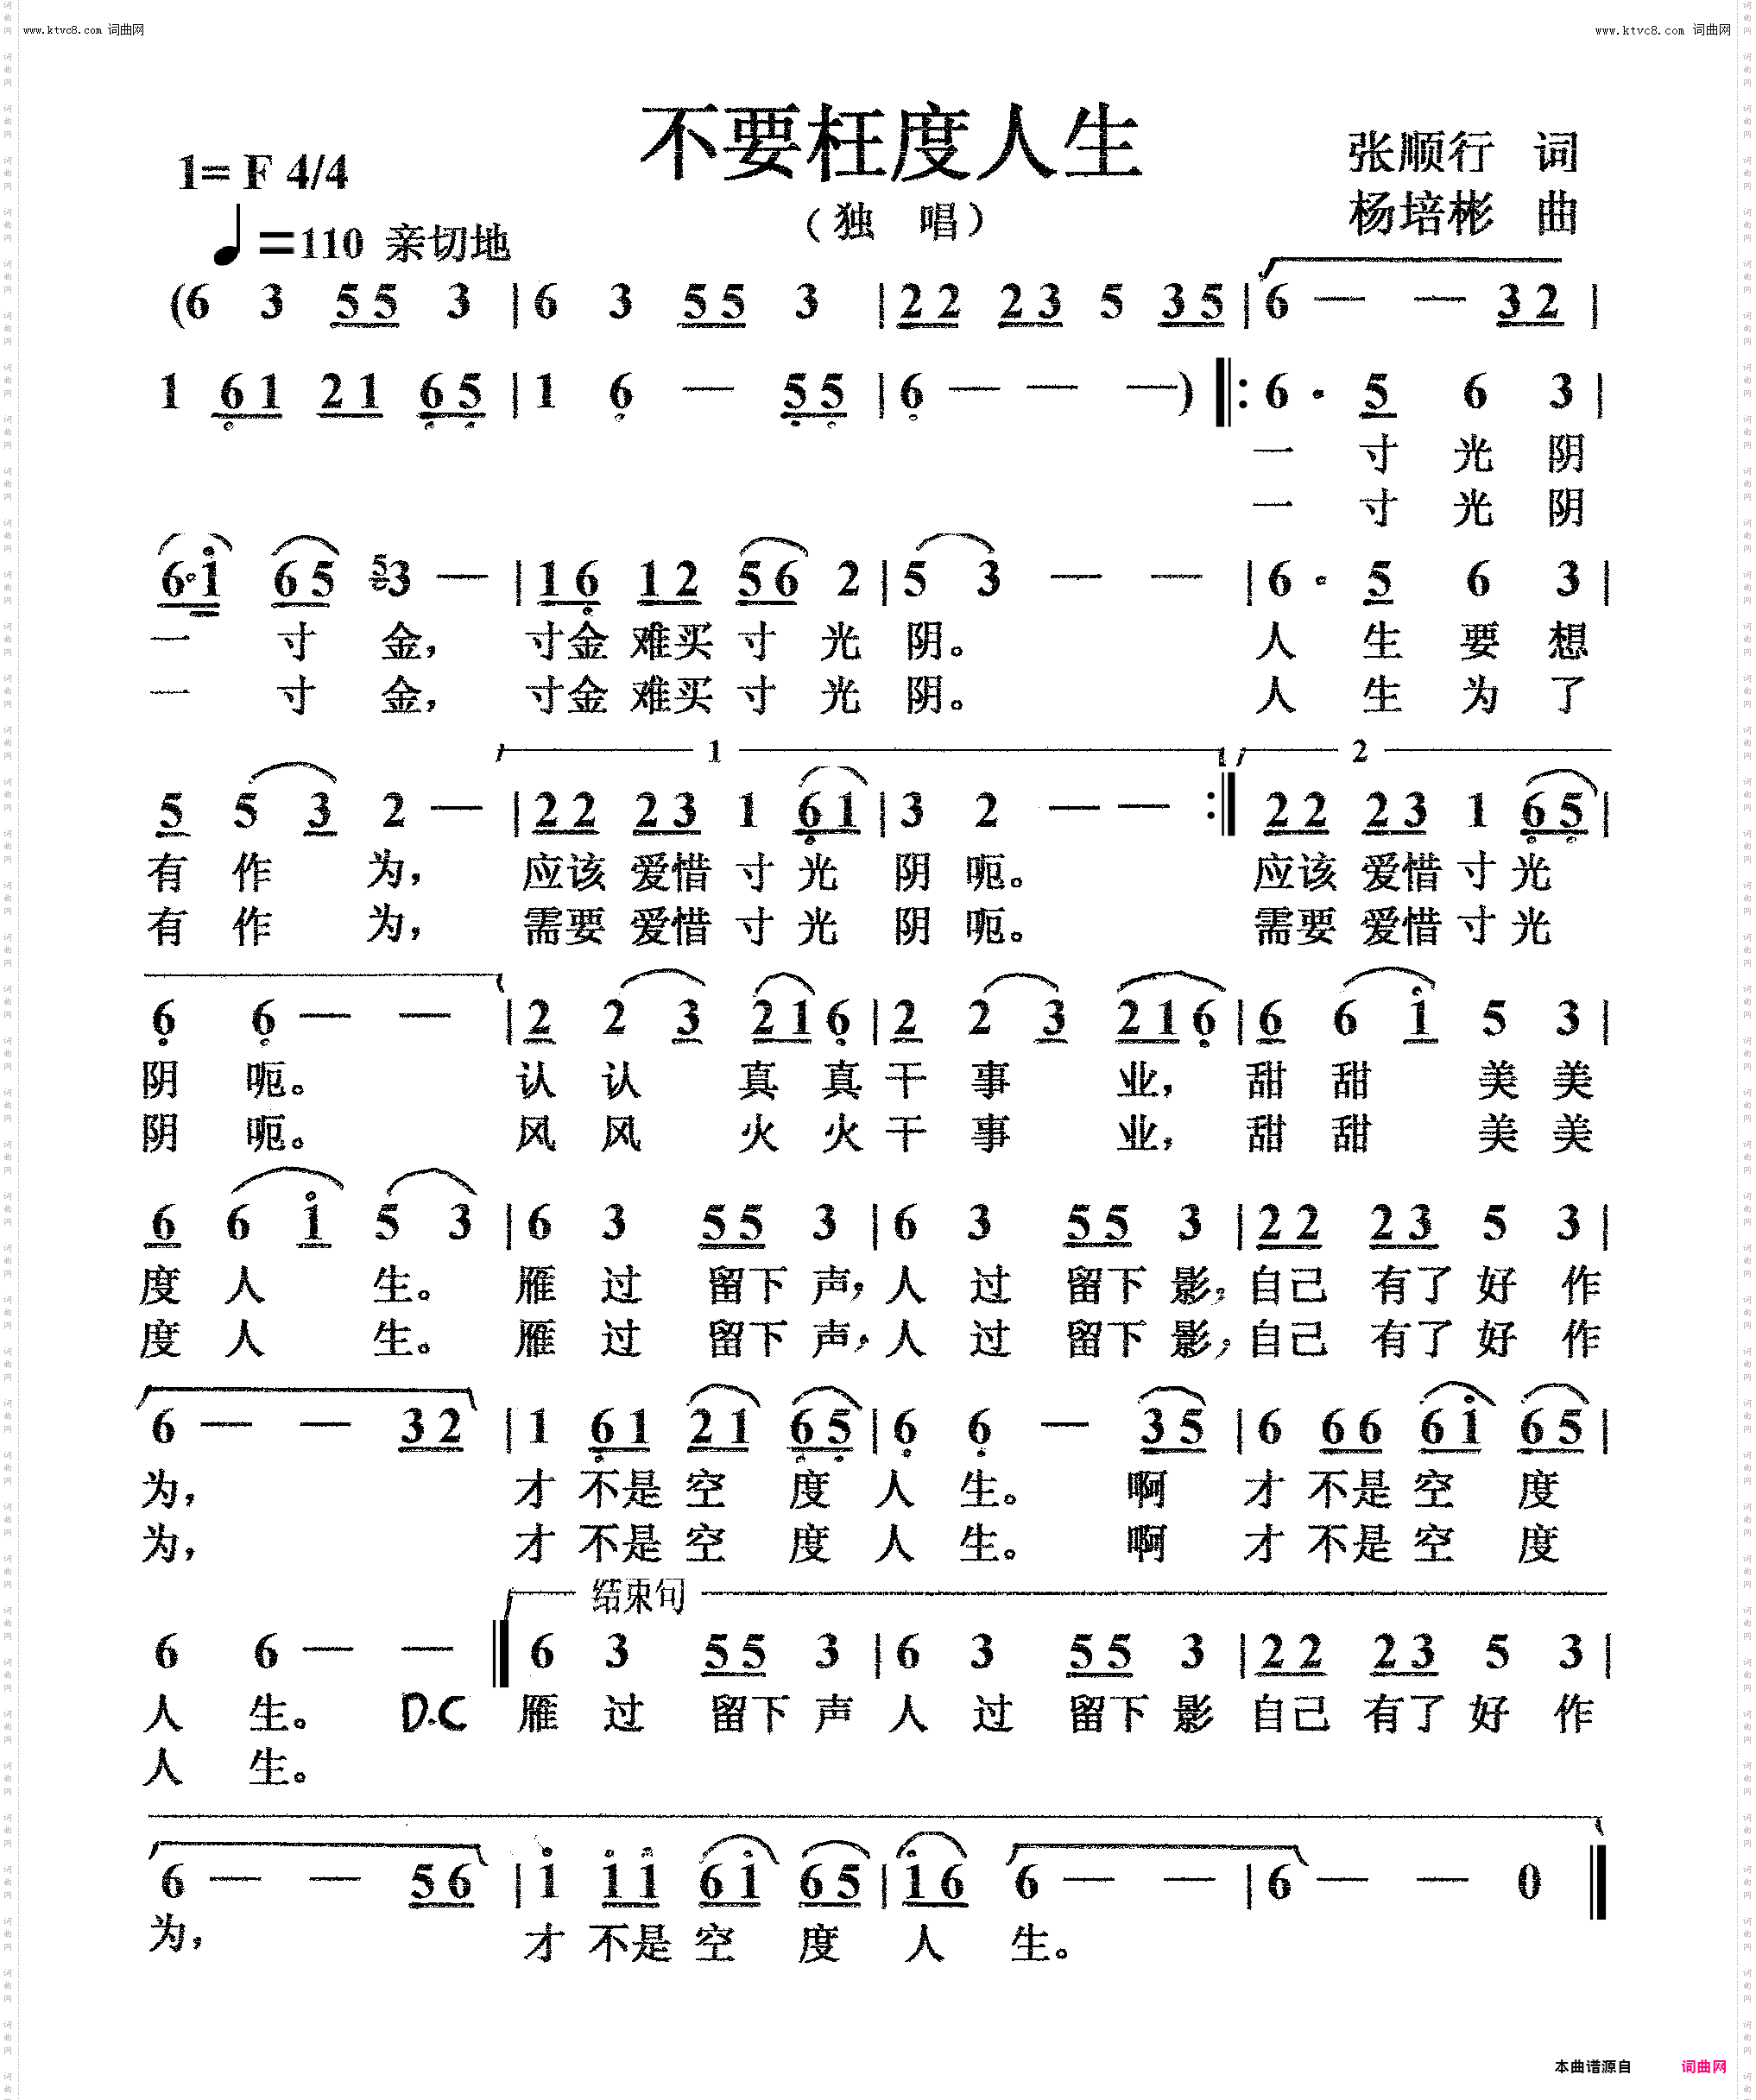 www.ktvc8.com 词曲网
www.ktvc8.com 词曲网
不要枉度人生
1= F 4/4
张顺行 词
(独 唱)
杨培彬 曲
♩=110 亲切地
(6 3 5 5 3 | 6 3 5 5 3 | 2 2 2 3 5 3 5 | 6 — — 3 2 |
1 6 1 2 1 6 5 | 1 6 — 5 5 | 6 — — —) ‖: 6 · 5 6 3 |
一 寸 光 阴
一 寸 光 阴
6·1 6 5 5 3 — | 1 6 1 2 5 6 2 | 5 3 — — | 6 · 5 6 3 |
一 寸 金, 寸金 难买 寸 光 阴。 人 生 要 想
一 寸 金, 寸金 难买 寸 光 阴。 人 生 为 了
1 2
5 5 3 2 — | 2 2 2 3 1 6 1 | 3 2 — — :‖ 2 2 2 3 1 6 5 |
有 作 为, 应该 爱惜 寸 光 阴 呃。 应该 爱惜 寸 光
有 作 为, 需要 爱惜 寸 光 阴 呃。 需要 爱惜 寸 光
6 6 — — | 2 2 3 2 1 6 | 2 2 3 2 1 6 | 6 6 1 5 3 |
阴 呃。 认 认 真 真 干 事 业, 甜 甜 美 美
阴 呃。 风 风 火 火 干 事 业, 甜 甜 美 美
6 6 1 5 3 | 6 3 5 5 3 | 6 3 5 5 3 | 2 2 2 3 5 3 |
度 人 生。 雁 过 留下 声, 人 过 留下 影, 自己 有了 好 作
度 人 生。 雁 过 留下 声, 人 过 留下 影, 自己 有了 好 作
6 — — 3 2 | 1 6 1 2 1 6 5 | 6 6 — 3 5 | 6 6 6 6 1 6 5 |
为, 才 不是 空 度 人 生。 啊 才 不是 空 度
为, 才 不是 空 度 人 生。 啊 才 不是 空 度
结束句
6 6 — — ‖ 6 3 5 5 3 | 6 3 5 5 3 | 2 2 2 3 5 3 |
人 生。 D.C 雁 过 留下 声 人 过 留下 影 自己 有了 好 作
人 生。
6 — — 5 6 | 1 1 1 6 1 6 5 | 1 6 6 — — | 6 — — 0 ‖
为, 才 不是 空 度 人 生。
本曲谱源自 词曲网